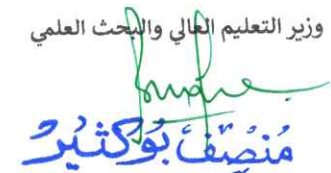 وزير التعليم العالي والبحث العلمي
مُنصِفْ بُوكثيرْ